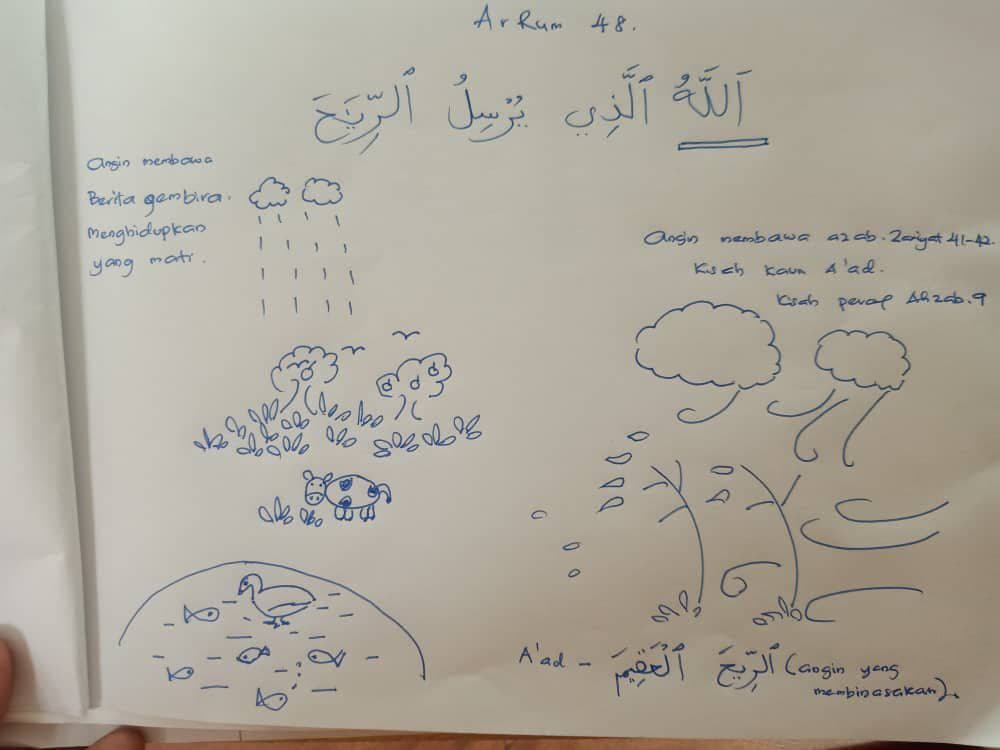 Ar Rum 48.
ٱللَّهُ ٱلَّذِي يُرْسِلُ ٱلرِّيَٰحَ
Angin membawa
Berita gembira.
Menghidupkan
yang mati.
Angin membawa azab. Zariyat 41-42.
Kisah Kaum A'ad.
Kisah perang Ahzab.9
A'ad - ٱلرِّيحَ ٱلْعَقِيمَ (angin yang
membinasakan).